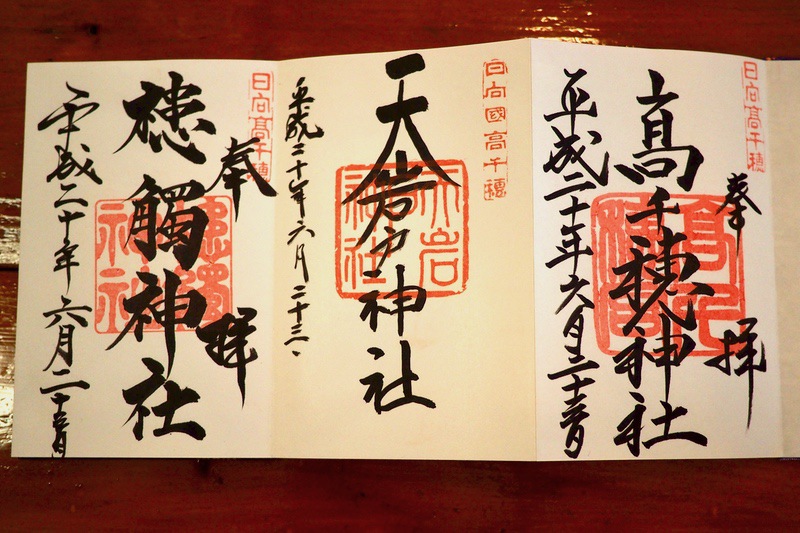 日向高千穂
奉拝
高千穂神社
平成二十年六月二十三日
日向國高千穂
天岩戸神社
平成二十年六月二十三日
日向高千穂
奉拝
槵觸神社
平成二十年六月二十三日